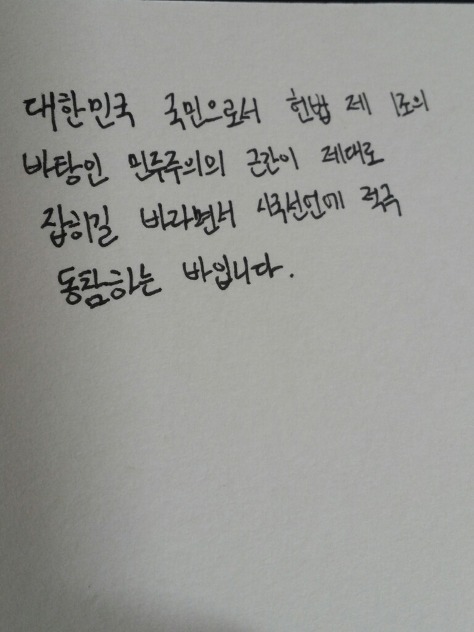 대한민국 국민으로서 헌법 제 1조의
바탕인 민주주의의 근간이 제대로
잡히길 바라면서 시국선언에 적극
동참하는 바입니다.